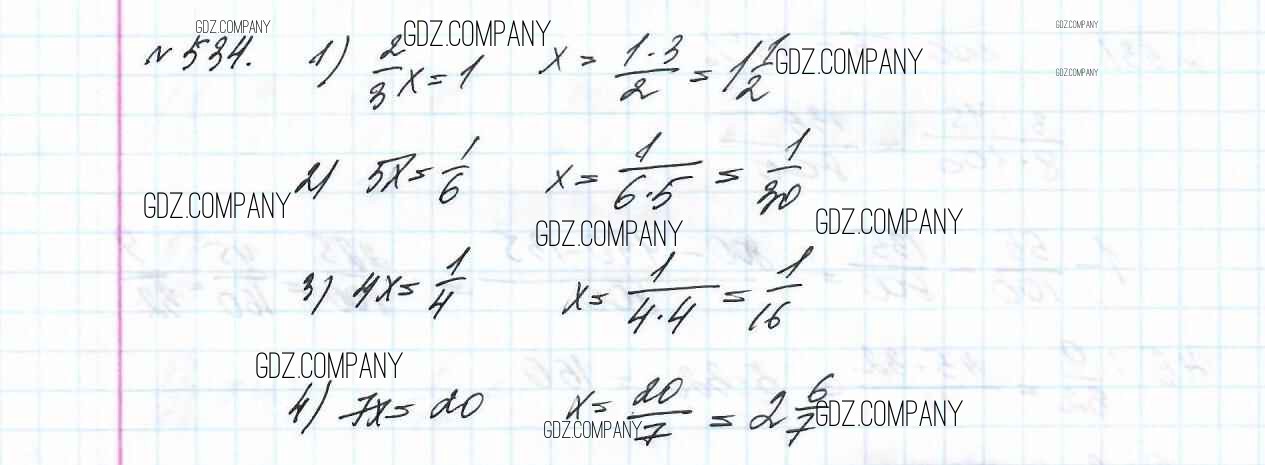 GDZ.COMPANY GDZ.COMPANY GDZ.COMPANY
№ 534. 1) 2/3 x = 1 x = 1·3/2 = 1 1/2 GDZ.COMPANY GDZ.COMPANY
2) 5x = 1/6 x = 1/6·5 = 1/30
GDZ.COMPANY GDZ.COMPANY GDZ.COMPANY
3) 4x = 1/4 x = 1/4·4 = 1/16
GDZ.COMPANY
4) 7x = 20 x = 20/7 = 2 6/7 GDZ.COMPANY
GDZ.COMPANY